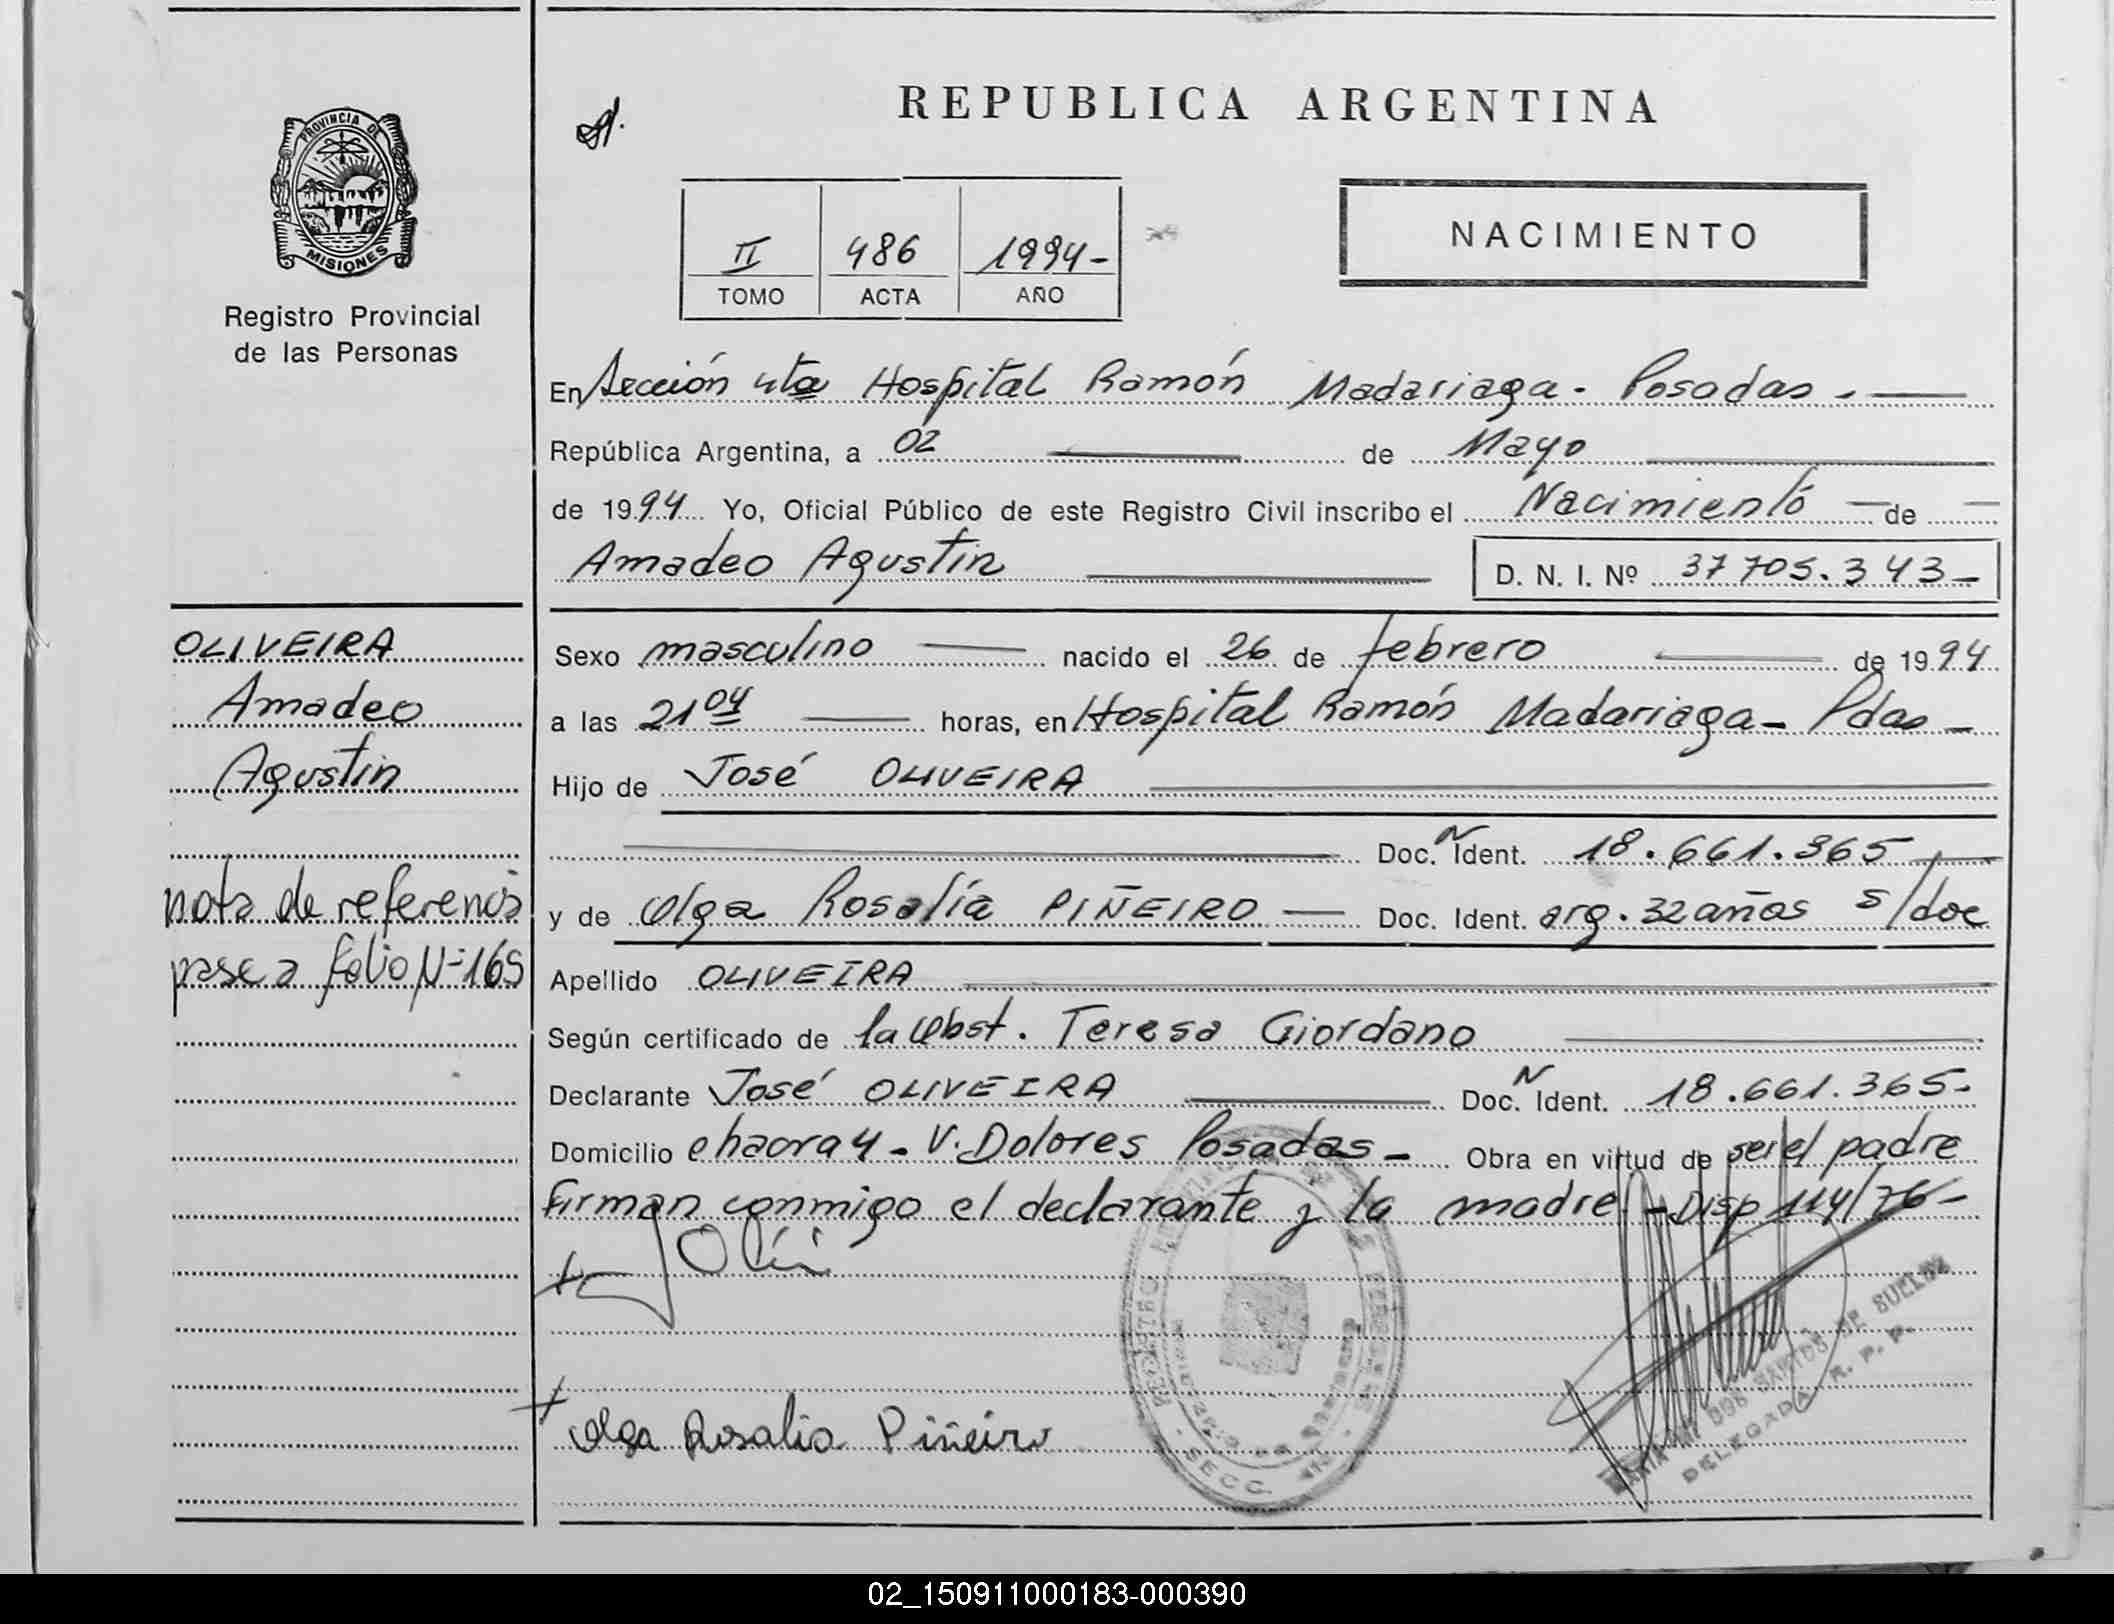 PROVINCIA DE
MISIONES
Registro Provincial
de las Personas
REPUBLICA ARGENTINA
II 486 1994-
TOMO ACTA AÑO
NACIMIENTO
En Sección 4ta Hospital Ramón Madariaga - Posadas -
República Argentina, a 02 de Mayo
de 1994 Yo, Oficial Público de este Registro Civil inscribo el Nacimientó de
Amadeo Agustin D. N. I. Nº 37 705.343-
OLIVEIRA
Amadeo
Agustin
nota de referencia
pase a folio Nº 165
Sexo masculino nacido el 26 de febrero de 1994
a las 21 04 horas, en Hospital Ramón Madariaga - Pdas -
Hijo de José OLIVEIRA
Doc. N Ident. 18.661.365
y de Olga Rosalía PIÑEIRO Doc. Ident. arg. 32 años s/doc
Apellido OLIVEIRA
Según certificado de la Obst. Teresa Giordano
Declarante José OLIVEIRA Doc. N Ident. 18.661.365-
Domicilio chacra 4 - V. Dolores Posadas - Obra en virtud de ser el padre
Firman conmigo el declarante y la madre - Disp 114/76-
Olga Rosalia Piñeiro
SECC.
DOS SANTOS DE SUELDZ
DELEGADA R. P. P.
02_150911000183-000390